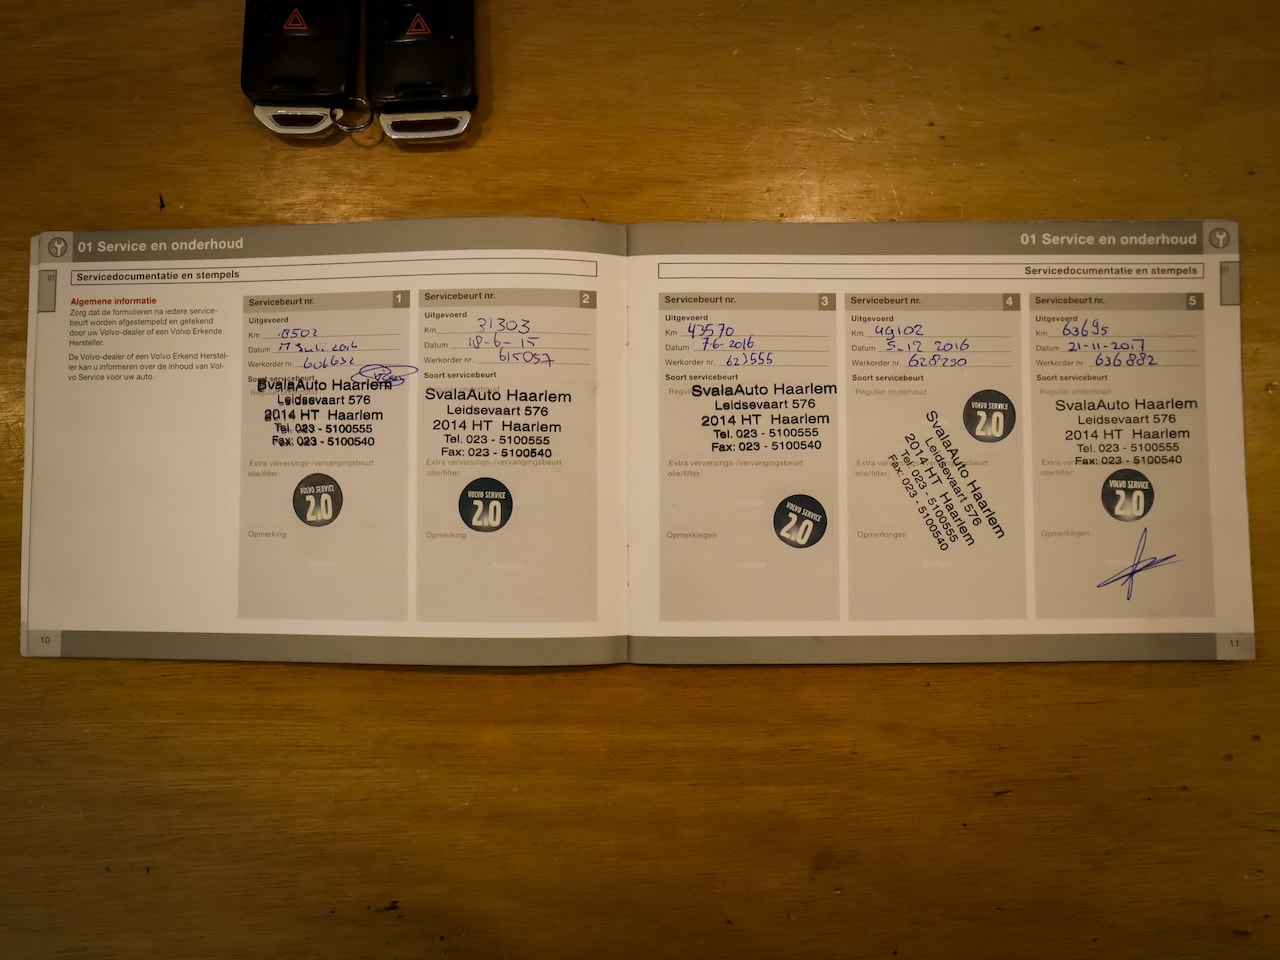 01 Service en onderhoud
01
Servicedocumentatie en stempels
Algemene informatie
Zorg dat de formulieren na iedere service-
beurt worden afgestempeld en getekend
door uw Volvo-dealer of een Volvo Erkende
Hersteller.
De Volvo-dealer of een Volvo Erkend Herstel-
ler kan u informeren over de inhoud van Vol-
vo Service voor uw auto.
Servicebeurt nr. 1
Uitgevoerd
Km 8502
Datum Juli
Werkorder nr. 606632
Soort servicebeurt
SvalaAuto Haarlem
Leidsevaart 576
2014 HT Haarlem
Tel. 023 - 5100555
Fax: 023 - 5100540
Extra verversings-/vervangingsbeurt
olie/filter:
VOLVO SERVICE
2.0
Opmerking
Servicebeurt nr. 2
Uitgevoerd
Km 31303
Datum 18-6-15
Werkorder nr. 615057
Soort servicebeurt
SvalaAuto Haarlem
Leidsevaart 576
2014 HT Haarlem
Tel. 023 - 5100555
Fax: 023 - 5100540
Extra verversings-/vervangingsbeurt
olie/filter:
VOLVO SERVICE
2.0
Opmerking
10
01 Service en onderhoud
01
Servicedocumentatie en stempels
Servicebeurt nr. 3
Uitgevoerd
Km 43570
Datum 7-6-2016
Werkorder nr.
Soort servicebeurt
SvalaAuto Haarlem
Leidsevaart 576
2014 HT Haarlem
Tel. 023 - 5100555
Fax: 023 - 5100540
Extra verversings-/vervangingsbeurt
olie/filter:
VOLVO SERVICE
2.0
Opmerkingen
Servicebeurt nr. 4
Uitgevoerd
Km 49102
Datum 5-12 2016
Werkorder nr. 628230
Soort servicebeurt
Regulier onderhoud
VOLVO SERVICE
2.0
SvalaAuto Haarlem
Leidsevaart 576
2014 HT Haarlem
Tel. 023 - 5100555
Fax: 023 - 5100540
Extra verversings-/vervangingsbeurt
olie/filter:
Opmerkingen
Servicebeurt nr. 5
Uitgevoerd
Km 63695
Datum 21-11-2017
Werkorder nr. 636882
Soort servicebeurt
Regulier onderhoud
SvalaAuto Haarlem
Leidsevaart 576
2014 HT Haarlem
Tel. 023 - 5100555
Fax: 023 - 5100540
Extra verversings-/vervangingsbeurt
olie/filter:
VOLVO SERVICE
2.0
Opmerkingen
11